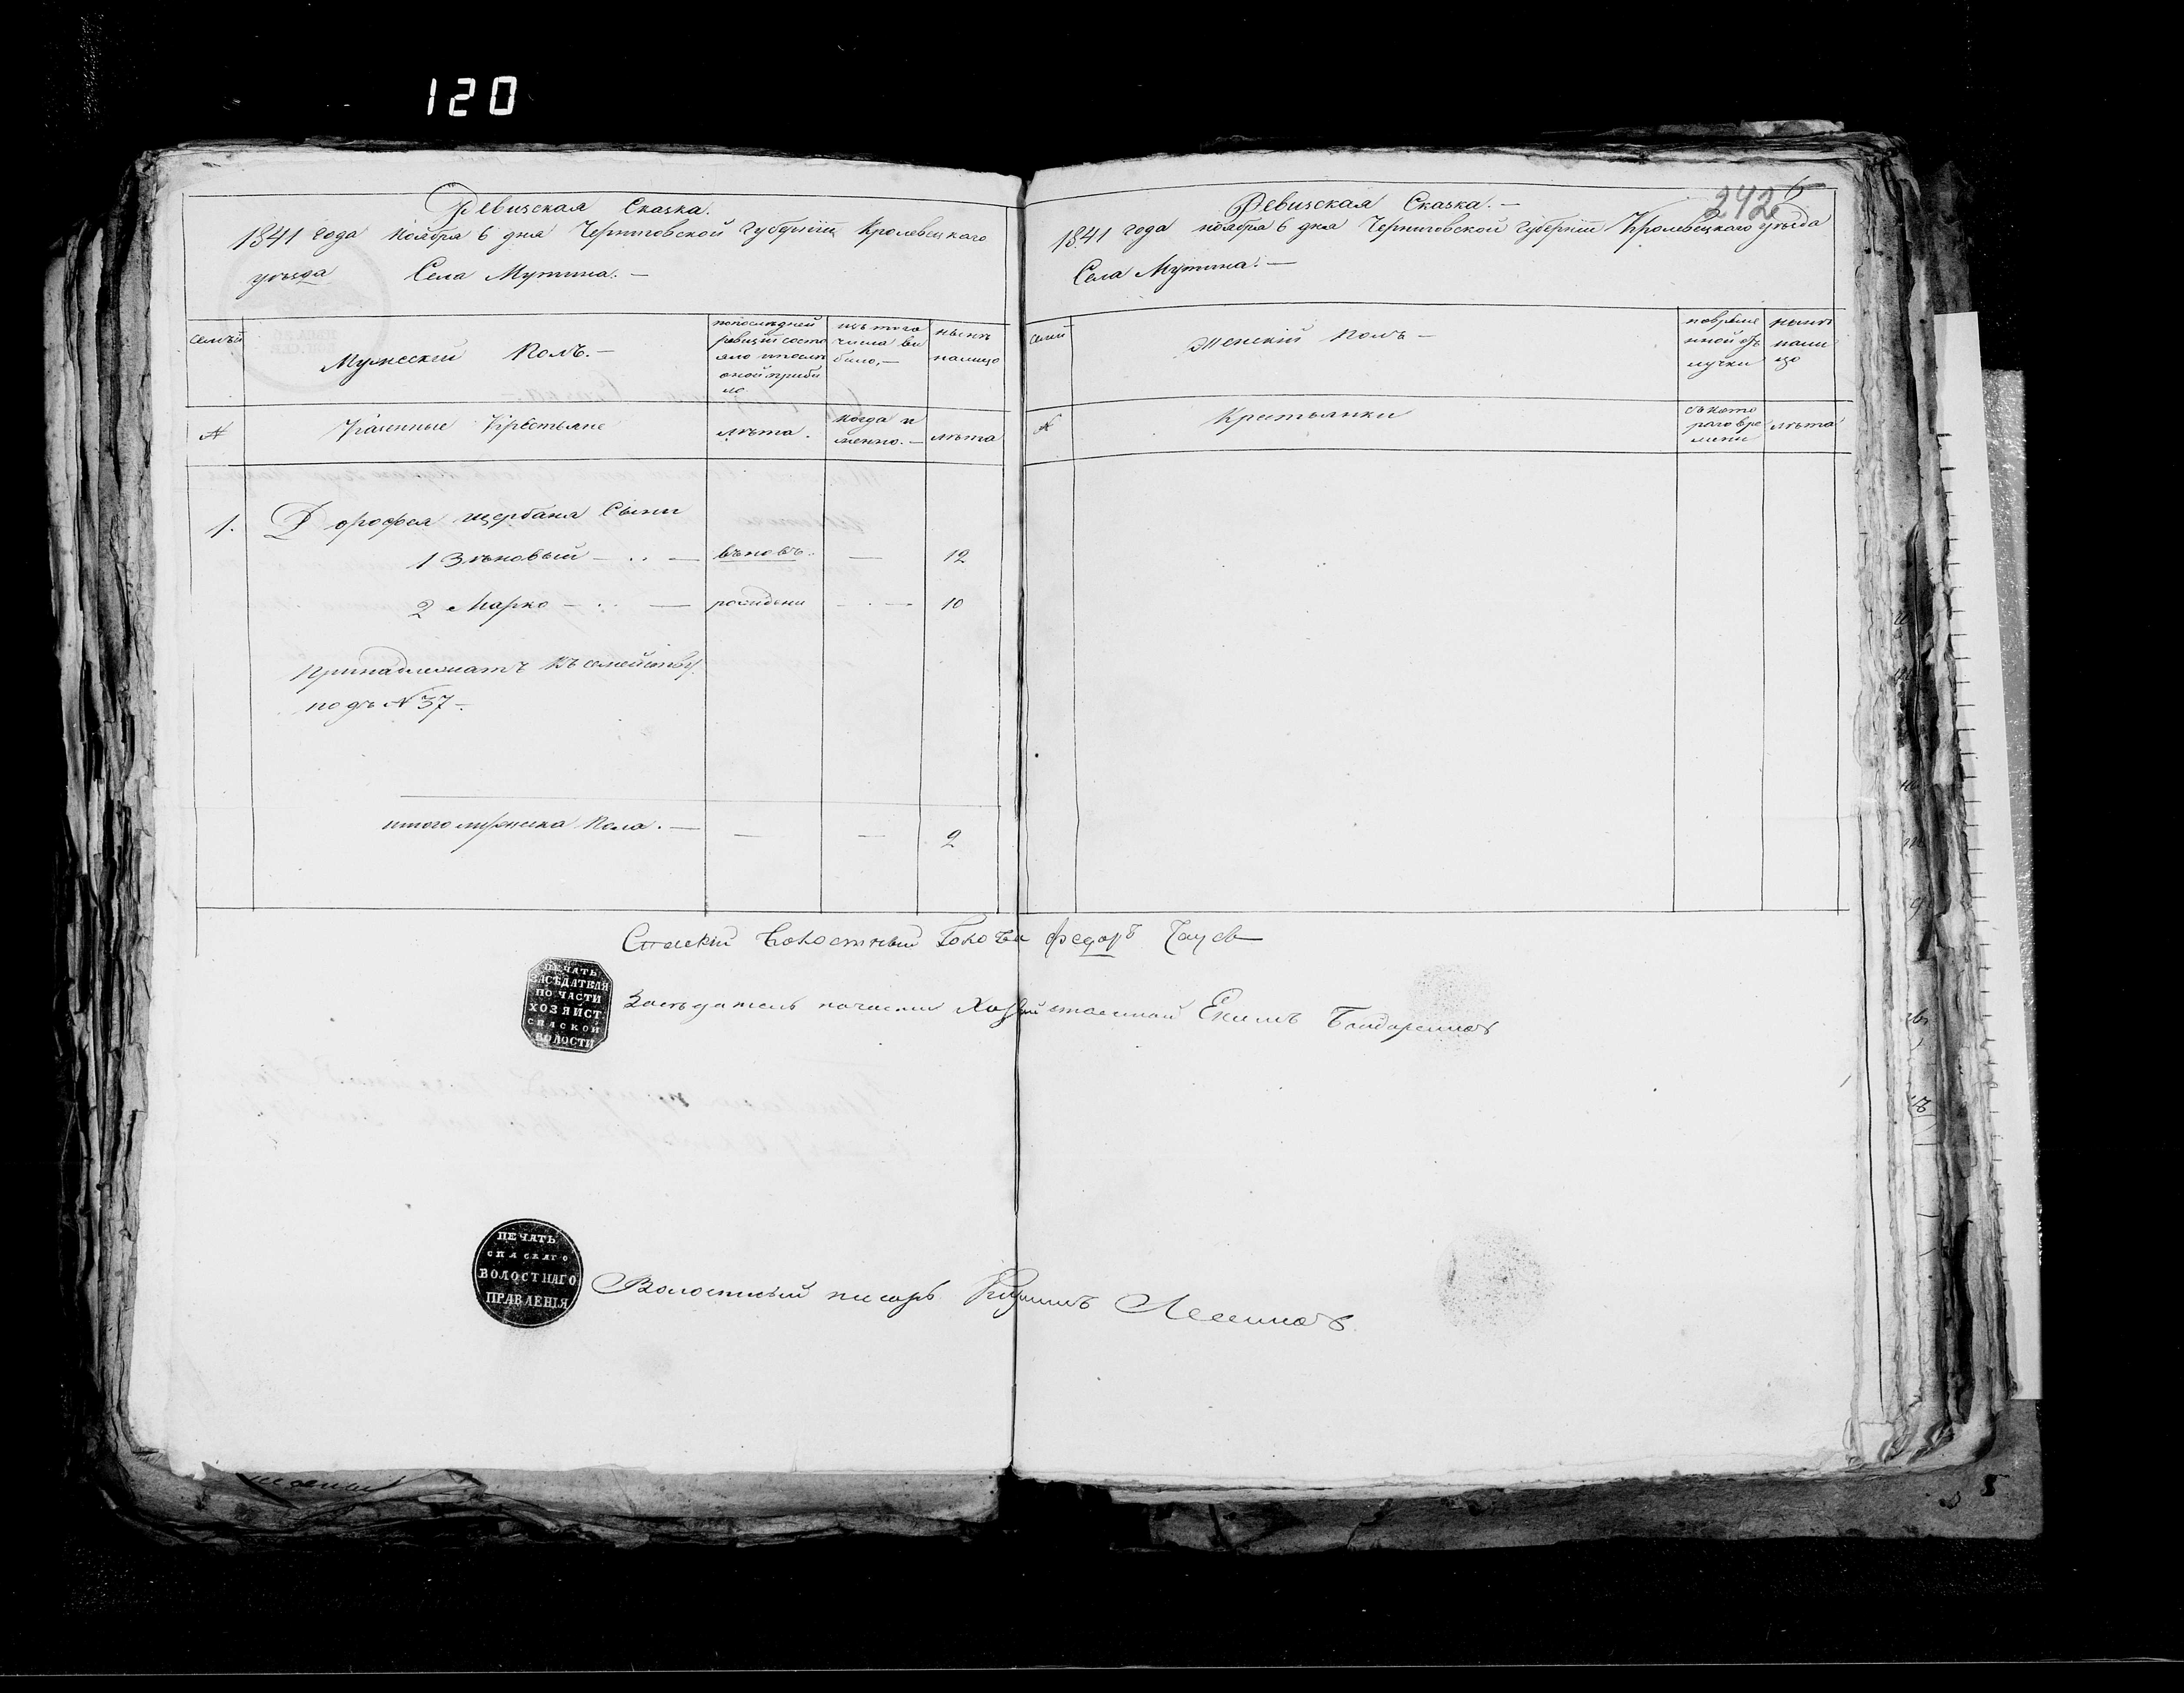 120
Ревизская Сказка.
1841 года Ноября 6 дня Черниговской губернии Кролевецкаго
уезда Села Мутина. —
семьи
Мужеский Полъ. —
попоследней
ревизии состо
яло ипосле
оной прибы
ло
изъ того
числа вы
было, —
нынъ
налицо
№
Казенные Крестьяне
лъта.
когда и
менно. —
лъта
1. Дорофея щербака Сыны
1 Зъновый — .. — въновъ. — 12
2 Марко — .. — рождены — . — 10
принадлежатъ къ семейству
подъ № 37 —
итого мужеска Пола. — — — 2
242
6
Ревизская Сказка. —
1841 года ноября 6 дня Черниговской губернии Кролевецкаго уъзда
Села Мутина. —
семьи
Женский Полъ —
повремe
нной от
лучки
нынъ
нали
цо
№
Крестьянки
съ кото
раго вре
мени
лъта
Спаский Волостный Голова Федоръ
ПЕЧАТЬ
ЗАСѢДАТЕЛЯ
ПО ЧАСТИ
ХОЗЯЙСТ.
СПАСКОЙ
ВОЛОСТИ
Засъдатель почасти Хозяйственной Екимъ Бондаренков
ПЕЧАТЬ
СПАСКАГО
ВОЛОСТНАГО
ПРАВЛЕНІЯ
Волостный писарь
5